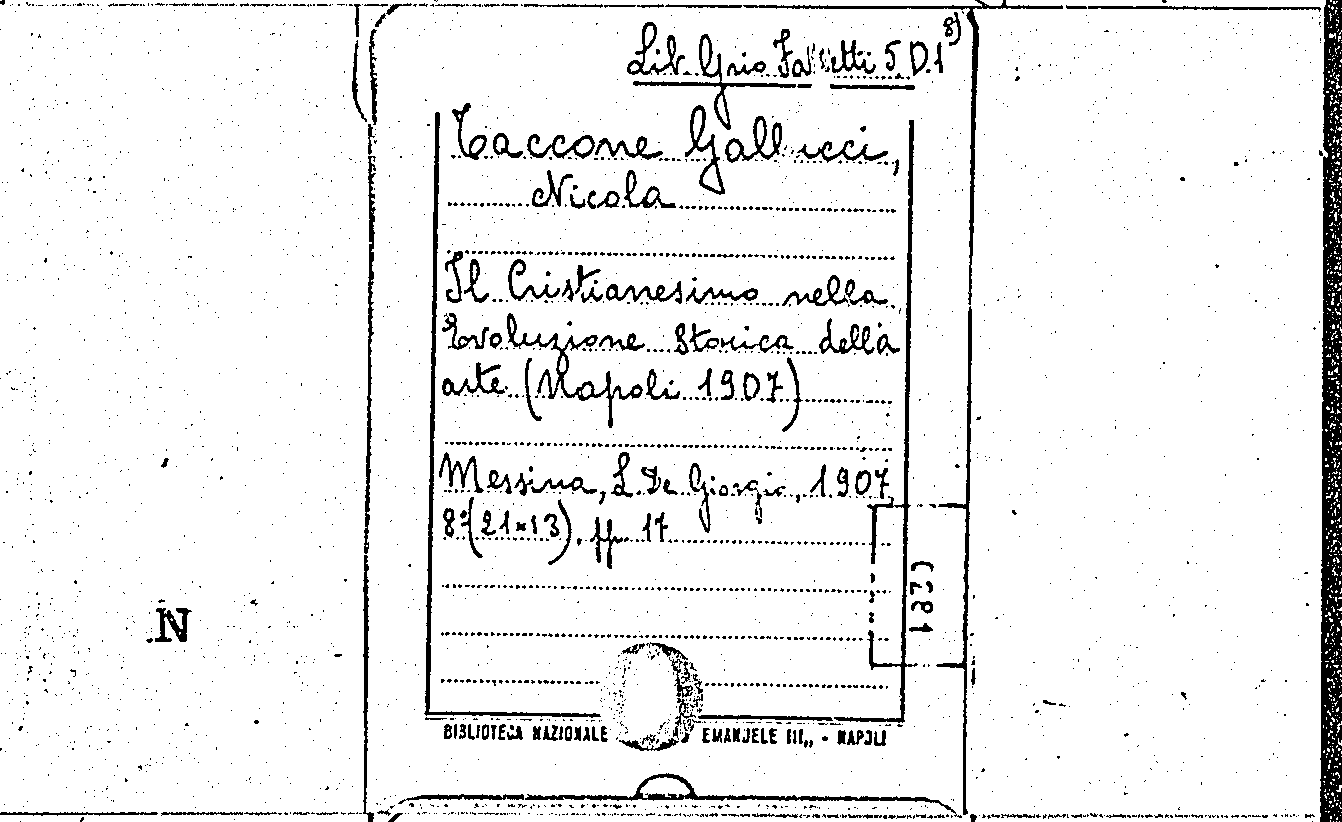 Lib. Grio Fa setti 5. D. 1 8)
Taccone Gallucci,
Nicola
Il Cristianesimo nella
Evoluzione Storica della
arte (Napoli 1907)
Messina, L. De Giorgio, 1907,
8°(21×13). pp. 17
N
BIBLIOTECA NAZIONALE EMANUELE III,, - NAPOLI